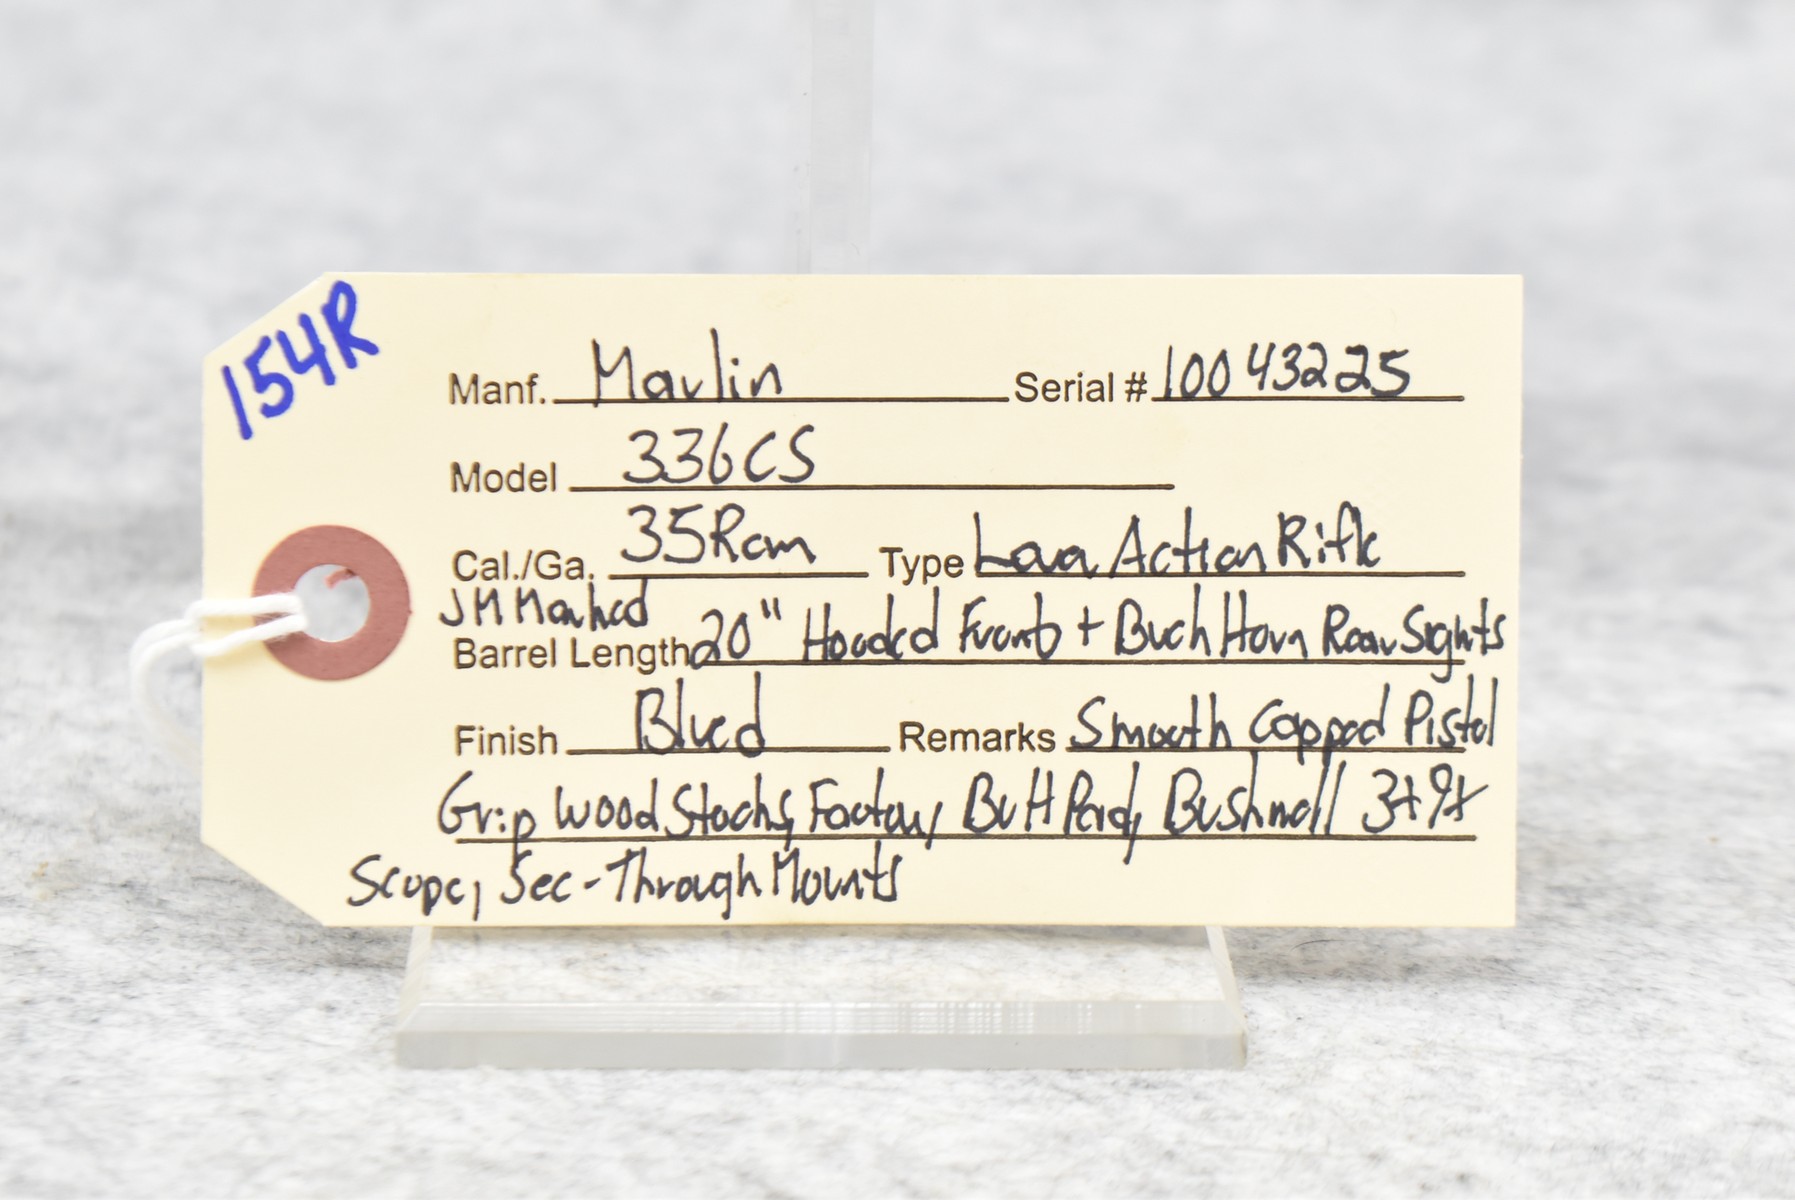 154R
Manf. Marlin Serial # 10043225
Model 336CS
Cal./Ga. 35Rem Type Lever Action Rifle
JM Marked
Barrel Length 20" Hooded Front + Buck Horn Rear Sights
Finish Blued Remarks Smooth Capped Pistol
Grip Wood Stocks, Factory Butt Pad, Bushnell 3x9x
Scope, See-Through Mounts